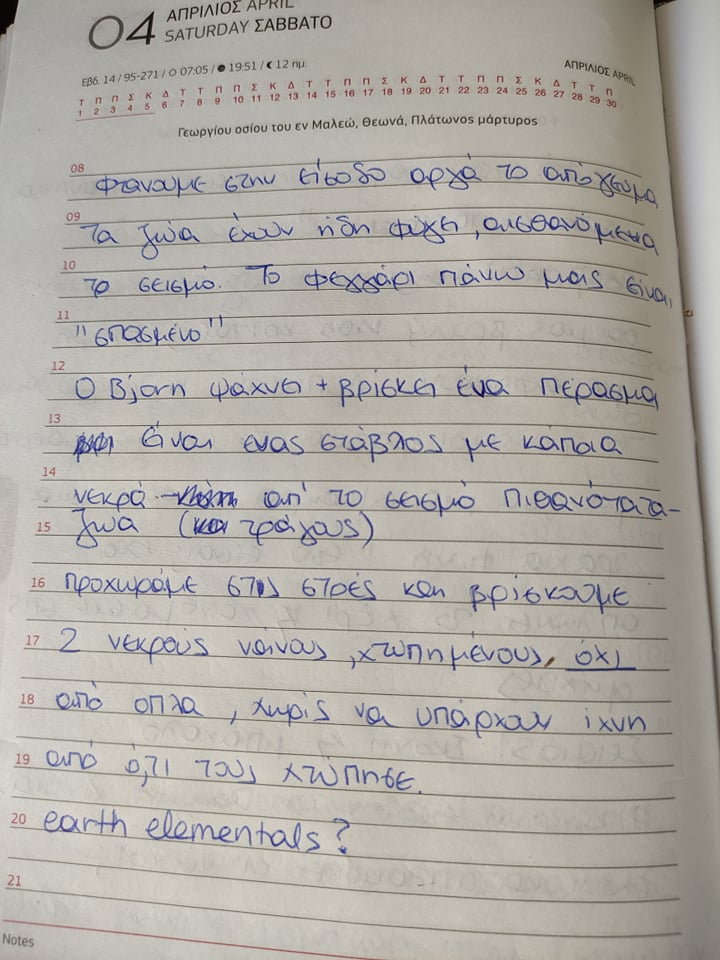 04 ΑΠΡΙΛΙΟΣ APRIL
SATURDAY ΣΑΒΒΑΤΟ
Εβδ. 14 / 95-271 / 07:05 / 19:51 / 12 ημ.
ΑΠΡΙΛΙΟΣ APRIL
Τ Π Π Σ Κ Δ Τ Τ Π Π Σ Κ Δ Τ Τ Π Π Σ Κ Δ Τ Τ Π Π Σ Κ Δ Τ Τ Π
1 2 3 4 5 6 7 8 9 10 11 12 13 14 15 16 17 18 19 20 21 22 23 24 25 26 27 28 29 30
Γεωργίου οσίου του εν Μαλεώ, Θεωνά, Πλάτωνος μάρτυρος
08 Φτάνουμε στην είσοδο αργά το απόγευμα
09 Τα ζώα έχουν ήδη φύγει, αισθανόμενα
10 το σεισμό. Το φεγγάρι πάνω μας είναι
11 "σπασμένο"
12 Ο Bjorn ψάχνει + βρίσκει ένα πέρασμα
13 είναι ενας στάβλος με κάποια
14 νεκρά - απ' το σεισμό πιθανότατα -
15 ζώα (και τράγους)
16 προχωράμε στις στοές και βρίσκουμε
17 2 νεκρούς νάνους, χτυπημένους, όχι
18 από οπλα, χωρίς να υπάρχουν ίχνη
19 από ό,τι τους χτύπησε.
20 earth elementals?
21
Notes